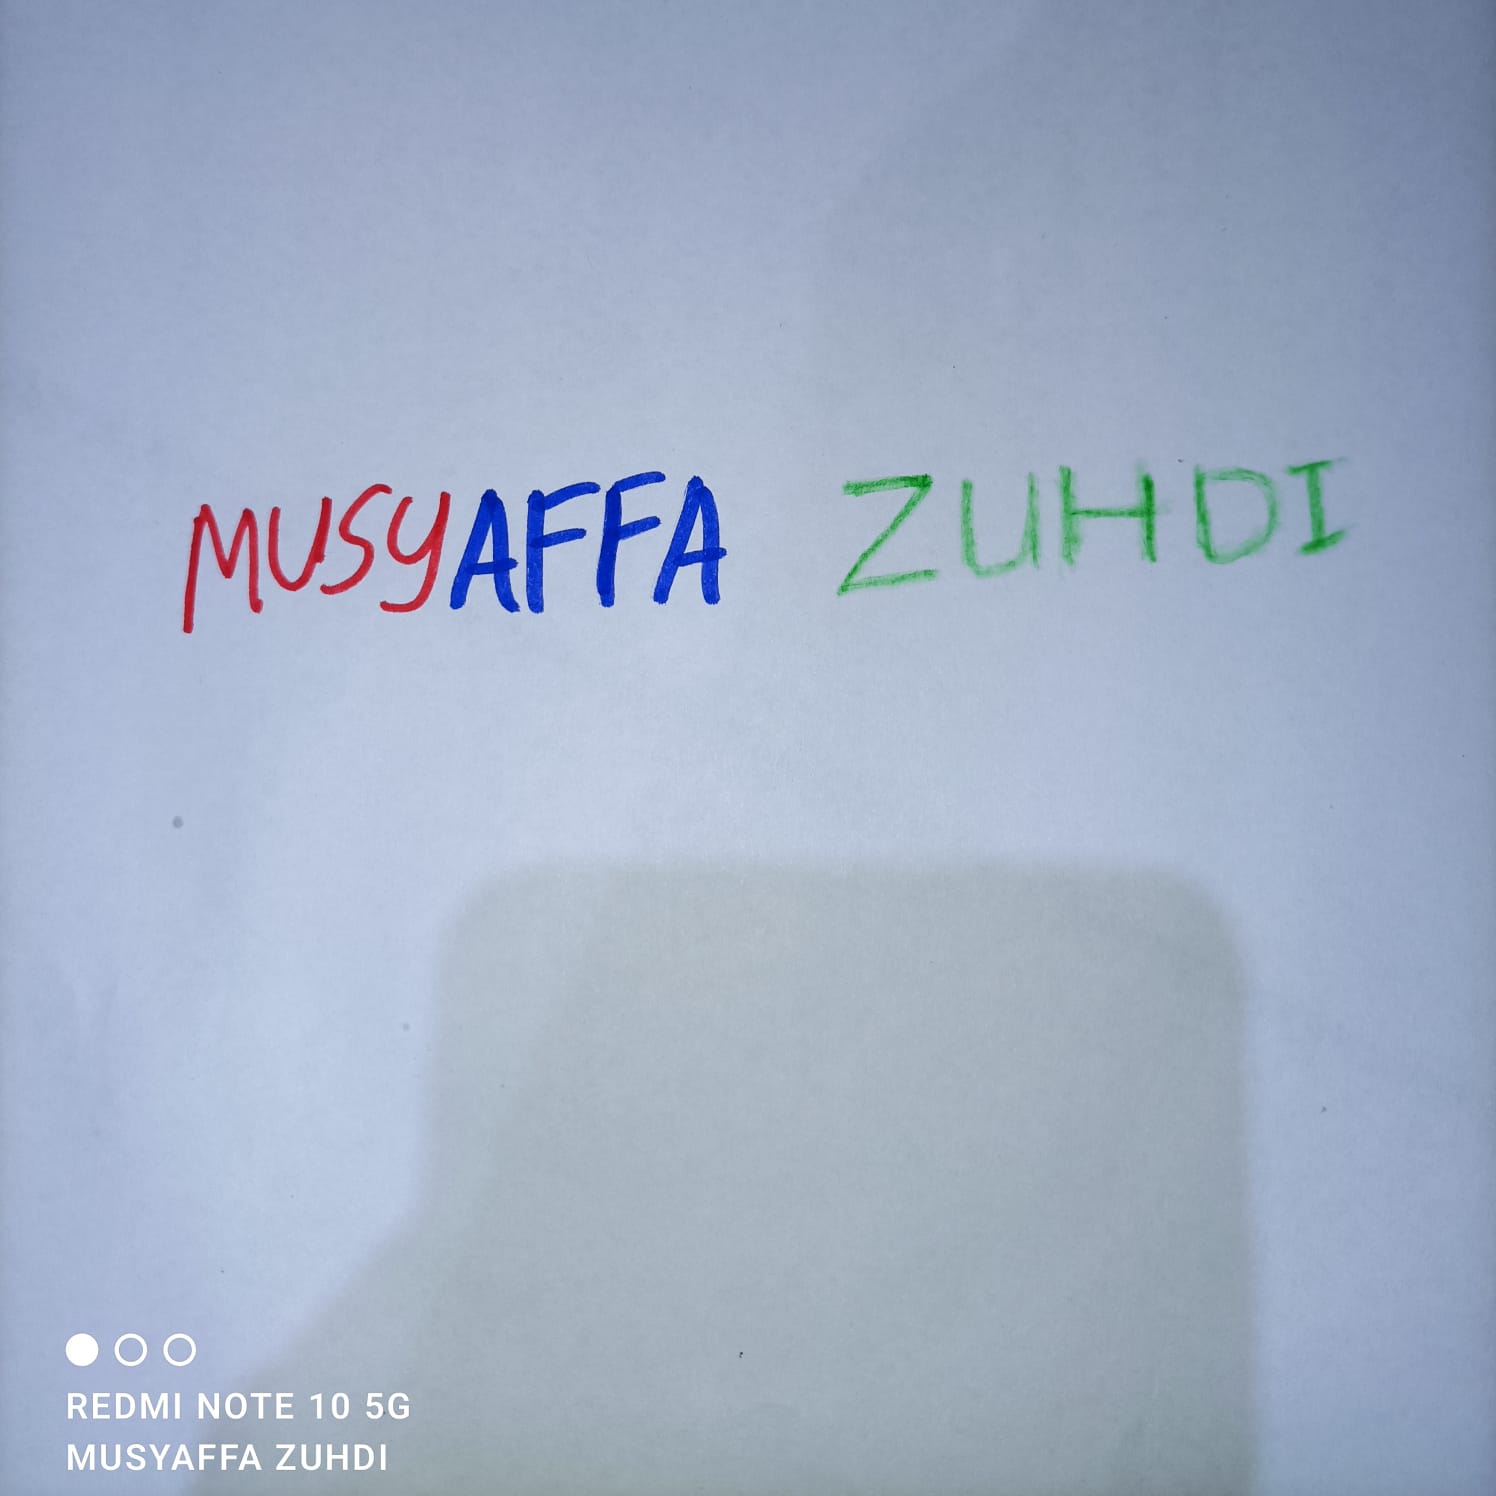 MUSYAFFA ZUHDI
REDMI NOTE 10 5G
MUSYAFFA ZUHDI